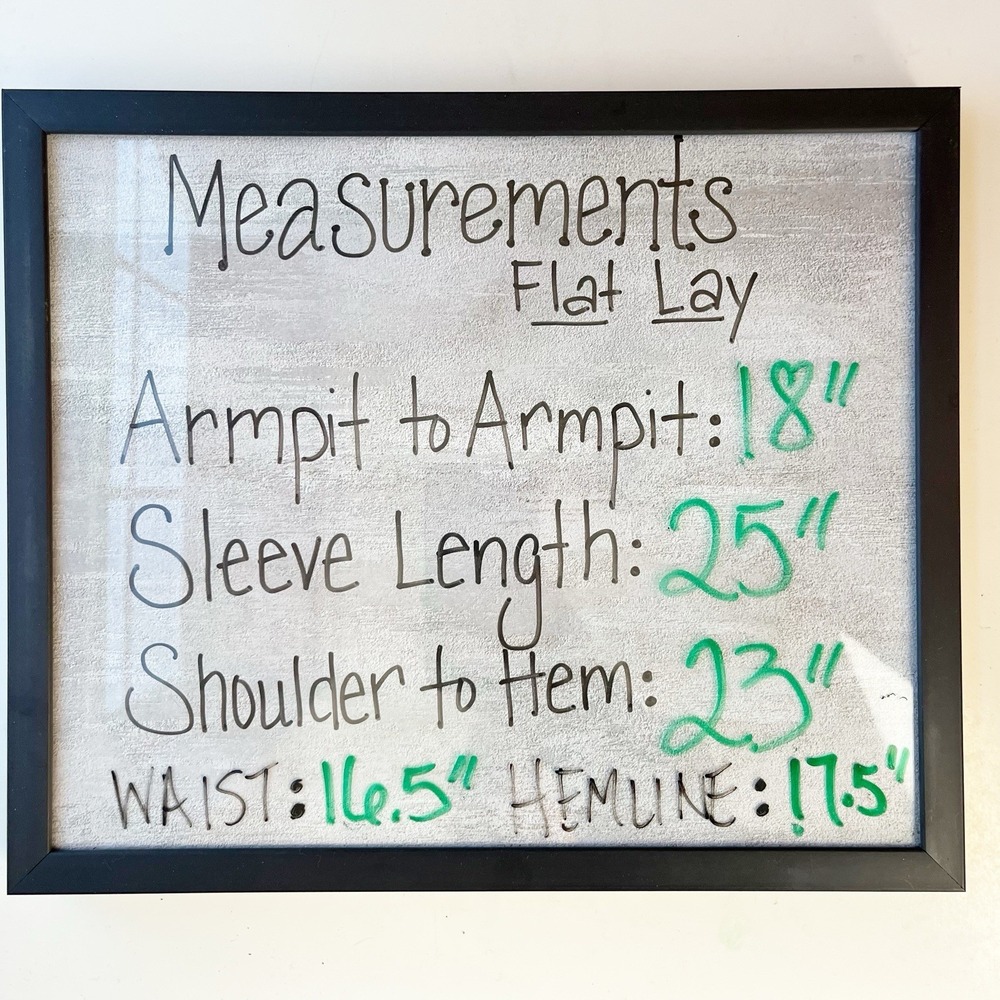 Measurements
Flat Lay
Armpit to Armpit: 18"
Sleeve Length: 25"
Shoulder to Hem: 23"
WAIST: 16.5" HEMLINE: 17.5"